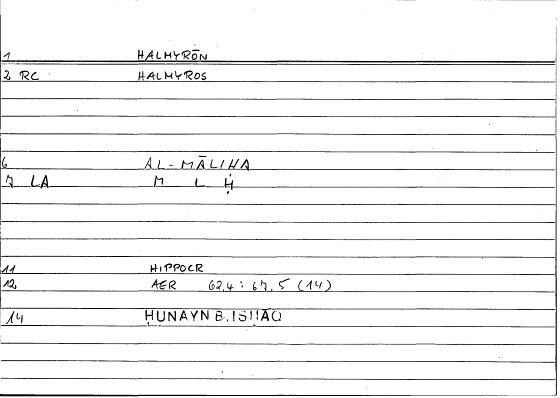 1 HALMYRŌN
2 RC HALMYROS
6 AL-MĀLIḤA
7 LA M L Ḥ
11 HIPPOCR
12 AER 62,4 : 67,5 (14)
14 ḤUNAYN B. ISḤĀQ